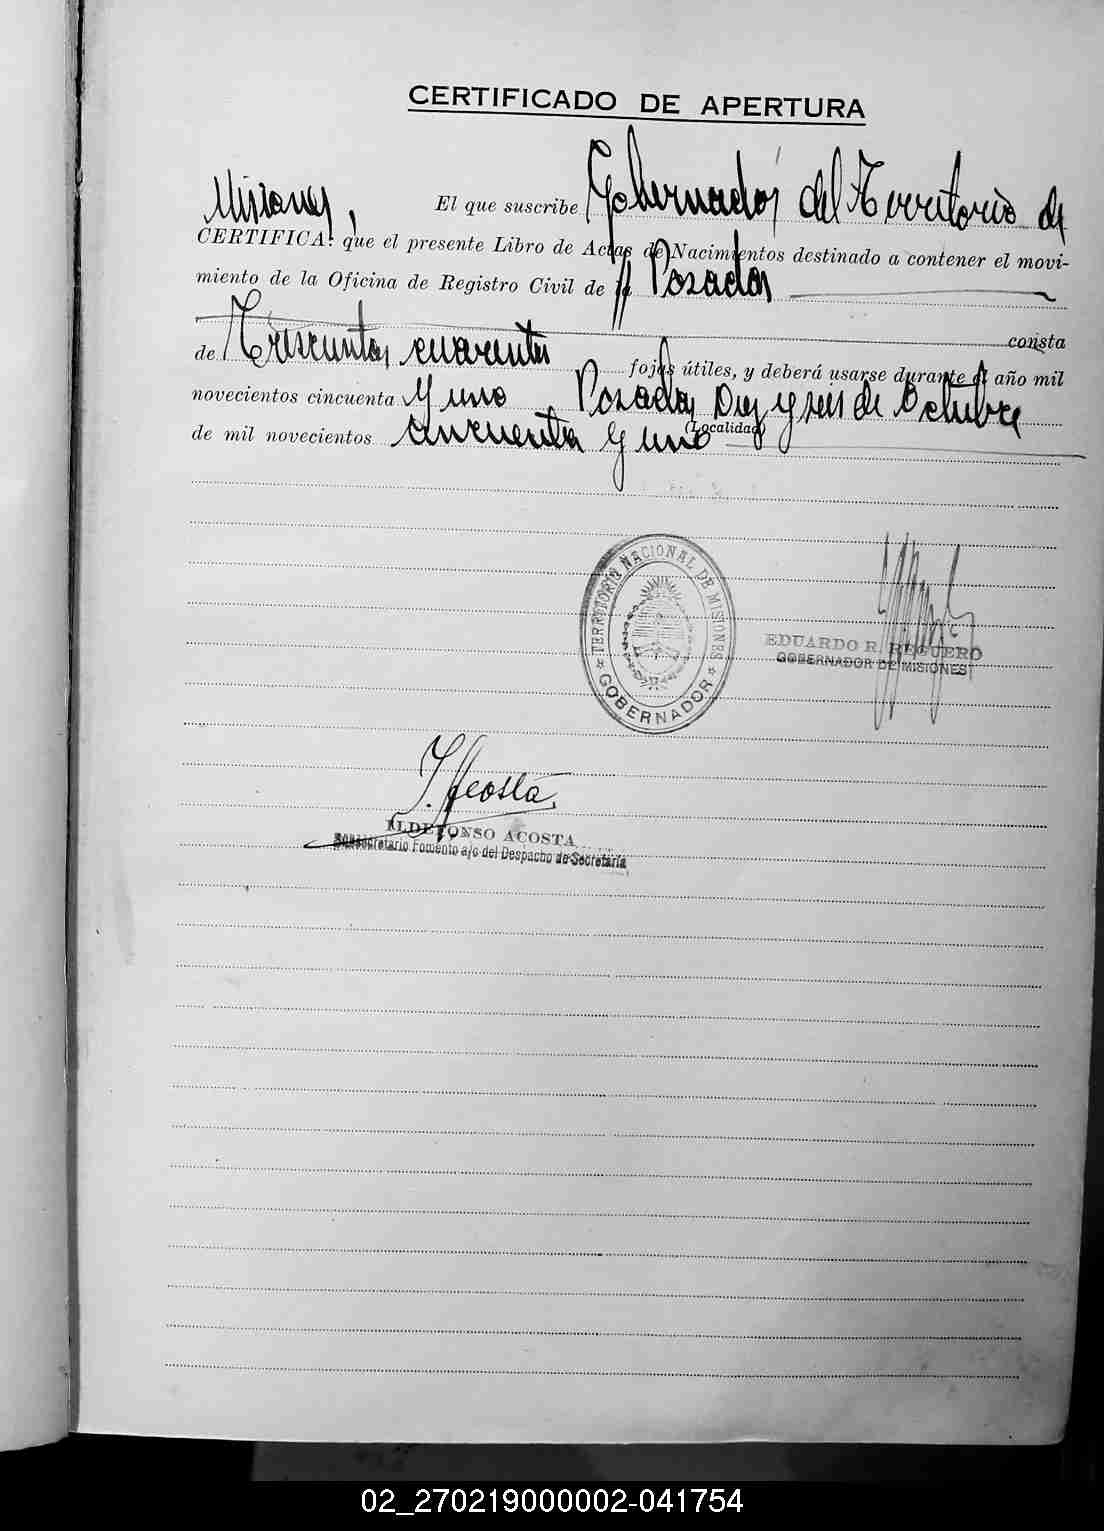 CERTIFICADO DE APERTURA
El que suscribe Gobernador del Territorio de
Misiones,
CERTIFICA: que el presente Libro de Actas de Nacimientos destinado a contener el movi-
miento de la Oficina de Registro Civil de Posadas
consta
de Trescientas cuarenta fojas útiles, y deberá usarse durante el año mil
novecientos cincuenta y uno Posadas Diez y seis de Octubre
(Localidad)
de mil novecientos cincuenta y uno
TERRITORIO NACIONAL DE MISIONES
GOBERNADOR
EDUARDO R. REGUERO
GOBERNADOR DE MISIONES
I. Acosta
ILDEFONSO ACOSTA
Subsecretario Fomento a/c del Despacho de Secretaría
02_270219000002-041754